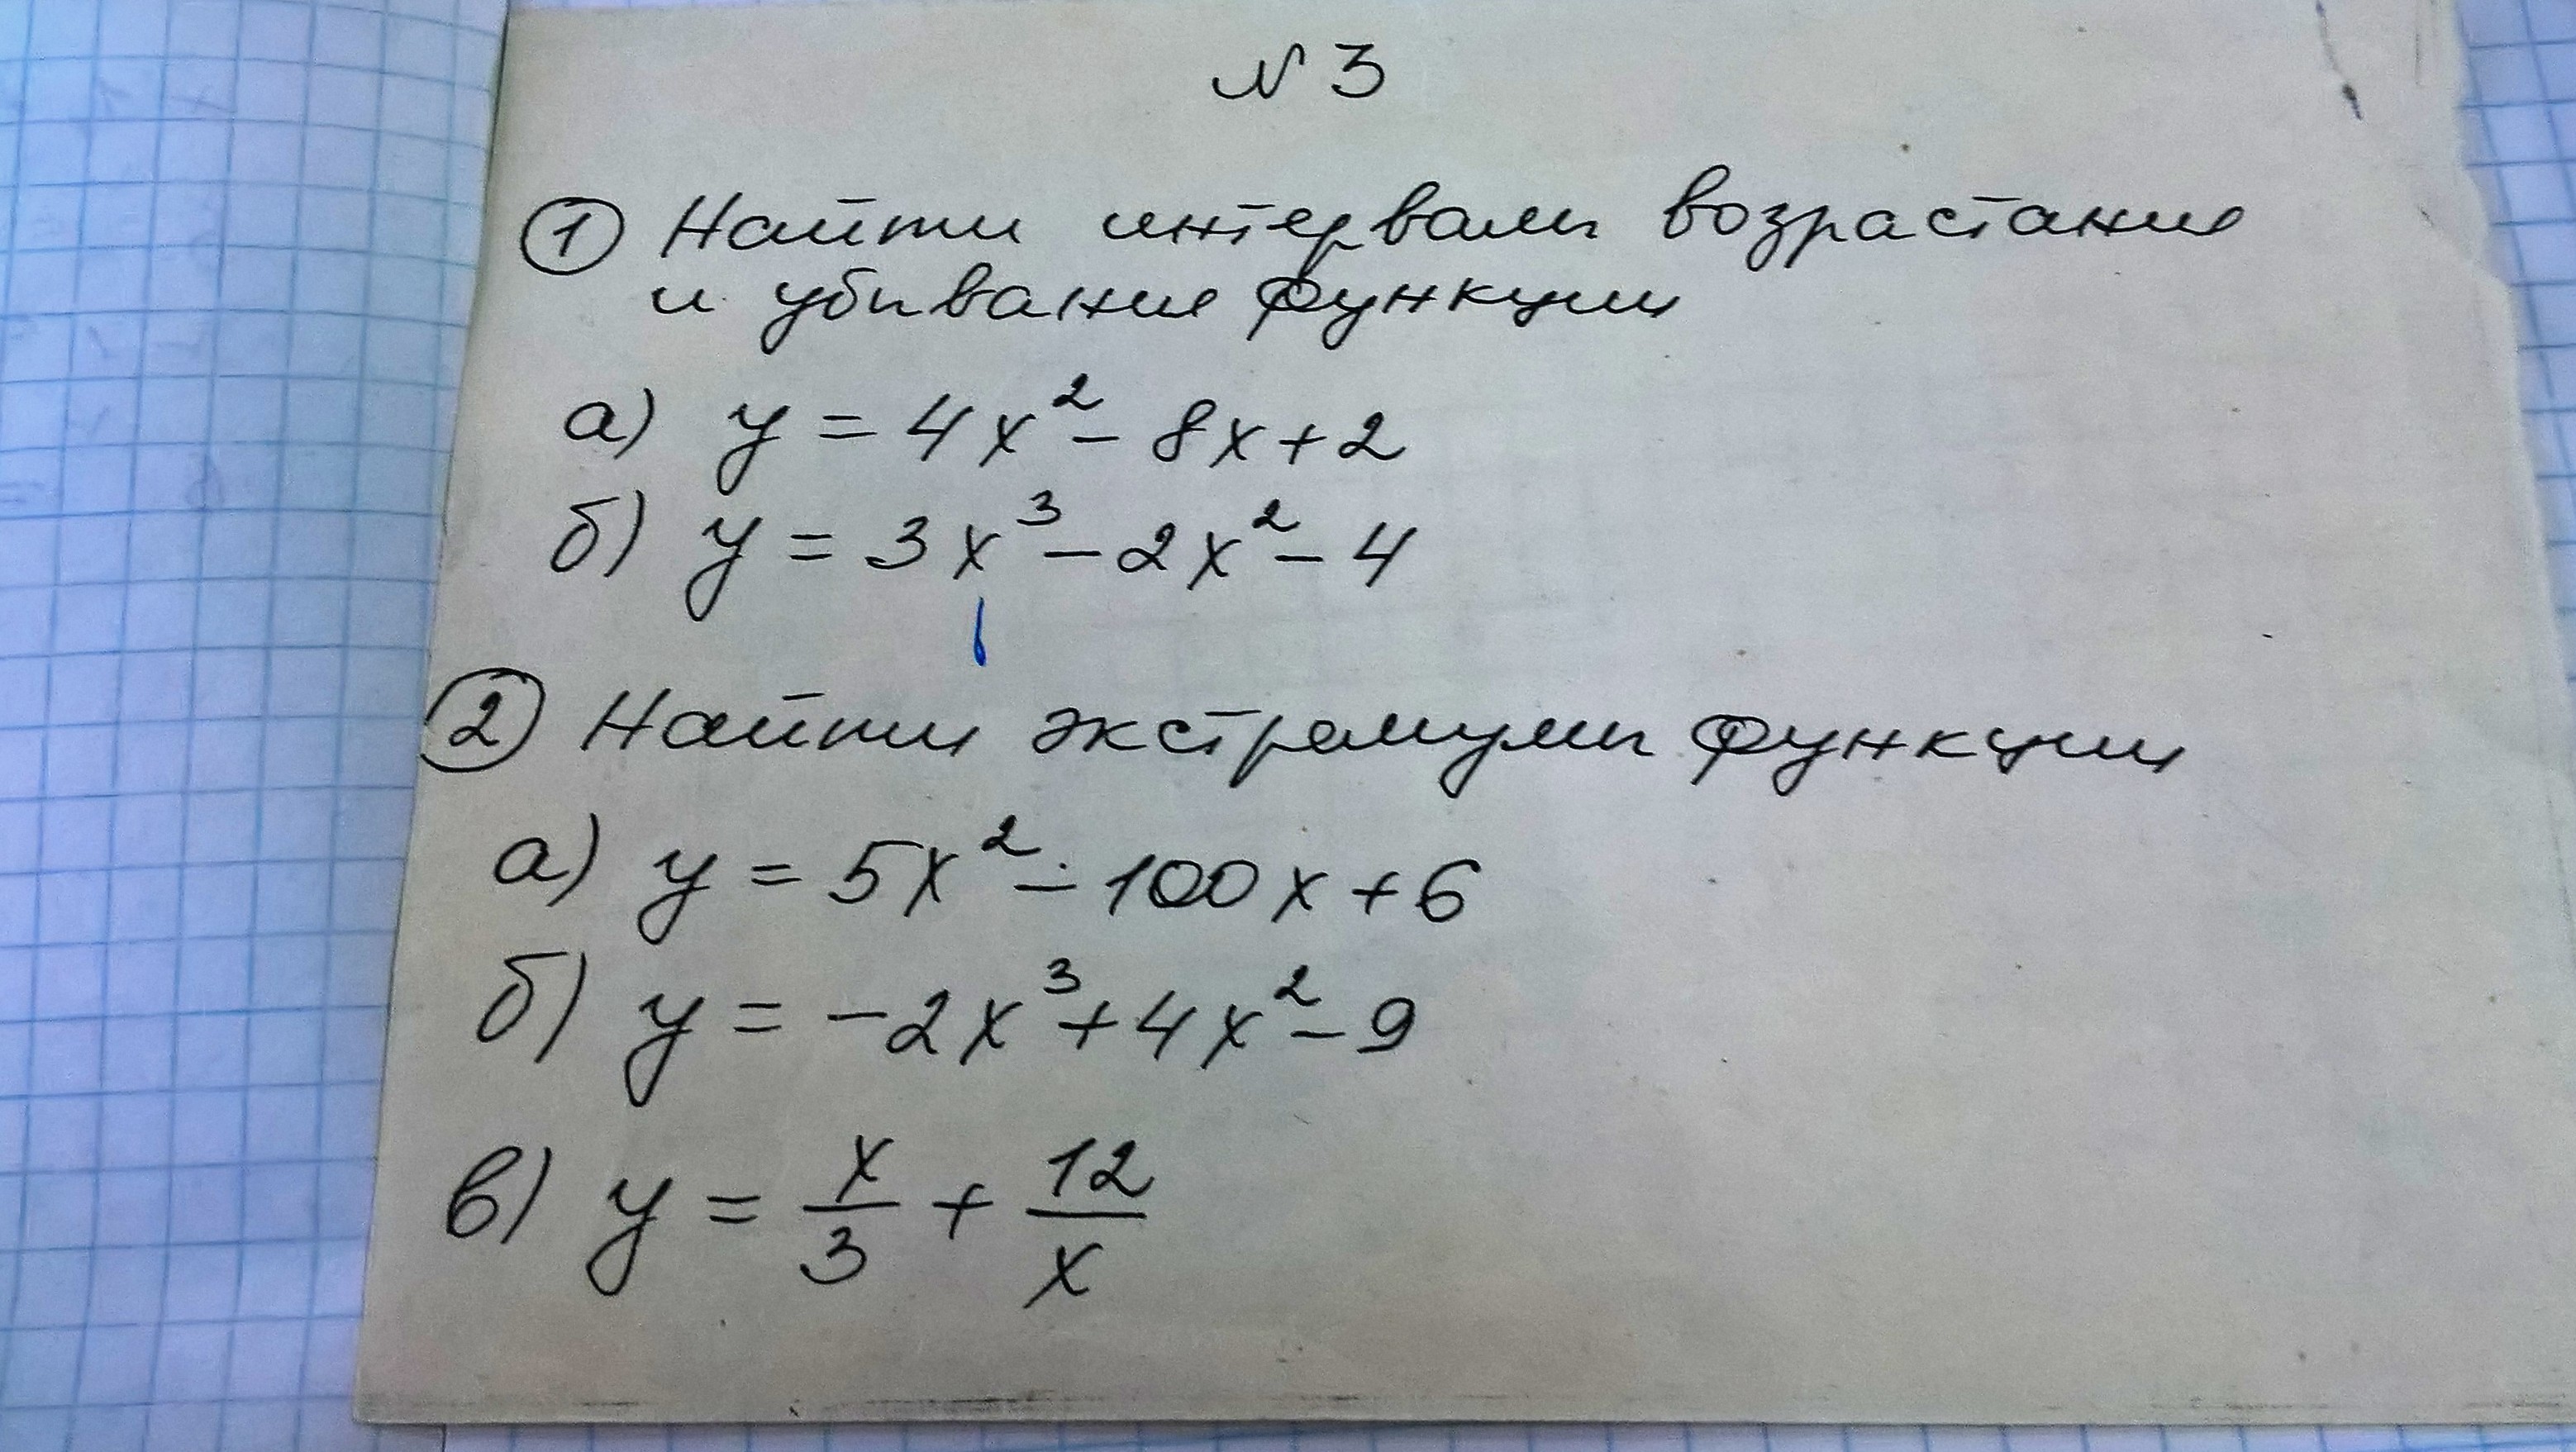 № 3
① Найти интервалы возрастания
и убывания функции
а) y = 4x² - 8x + 2
б) y = 3x³ - 2x² - 4
② Найти экстремумы функции
а) y = 5x² - 100x + 6
б) y = -2x³ + 4x² - 9
в) y = x/3 + 12/x